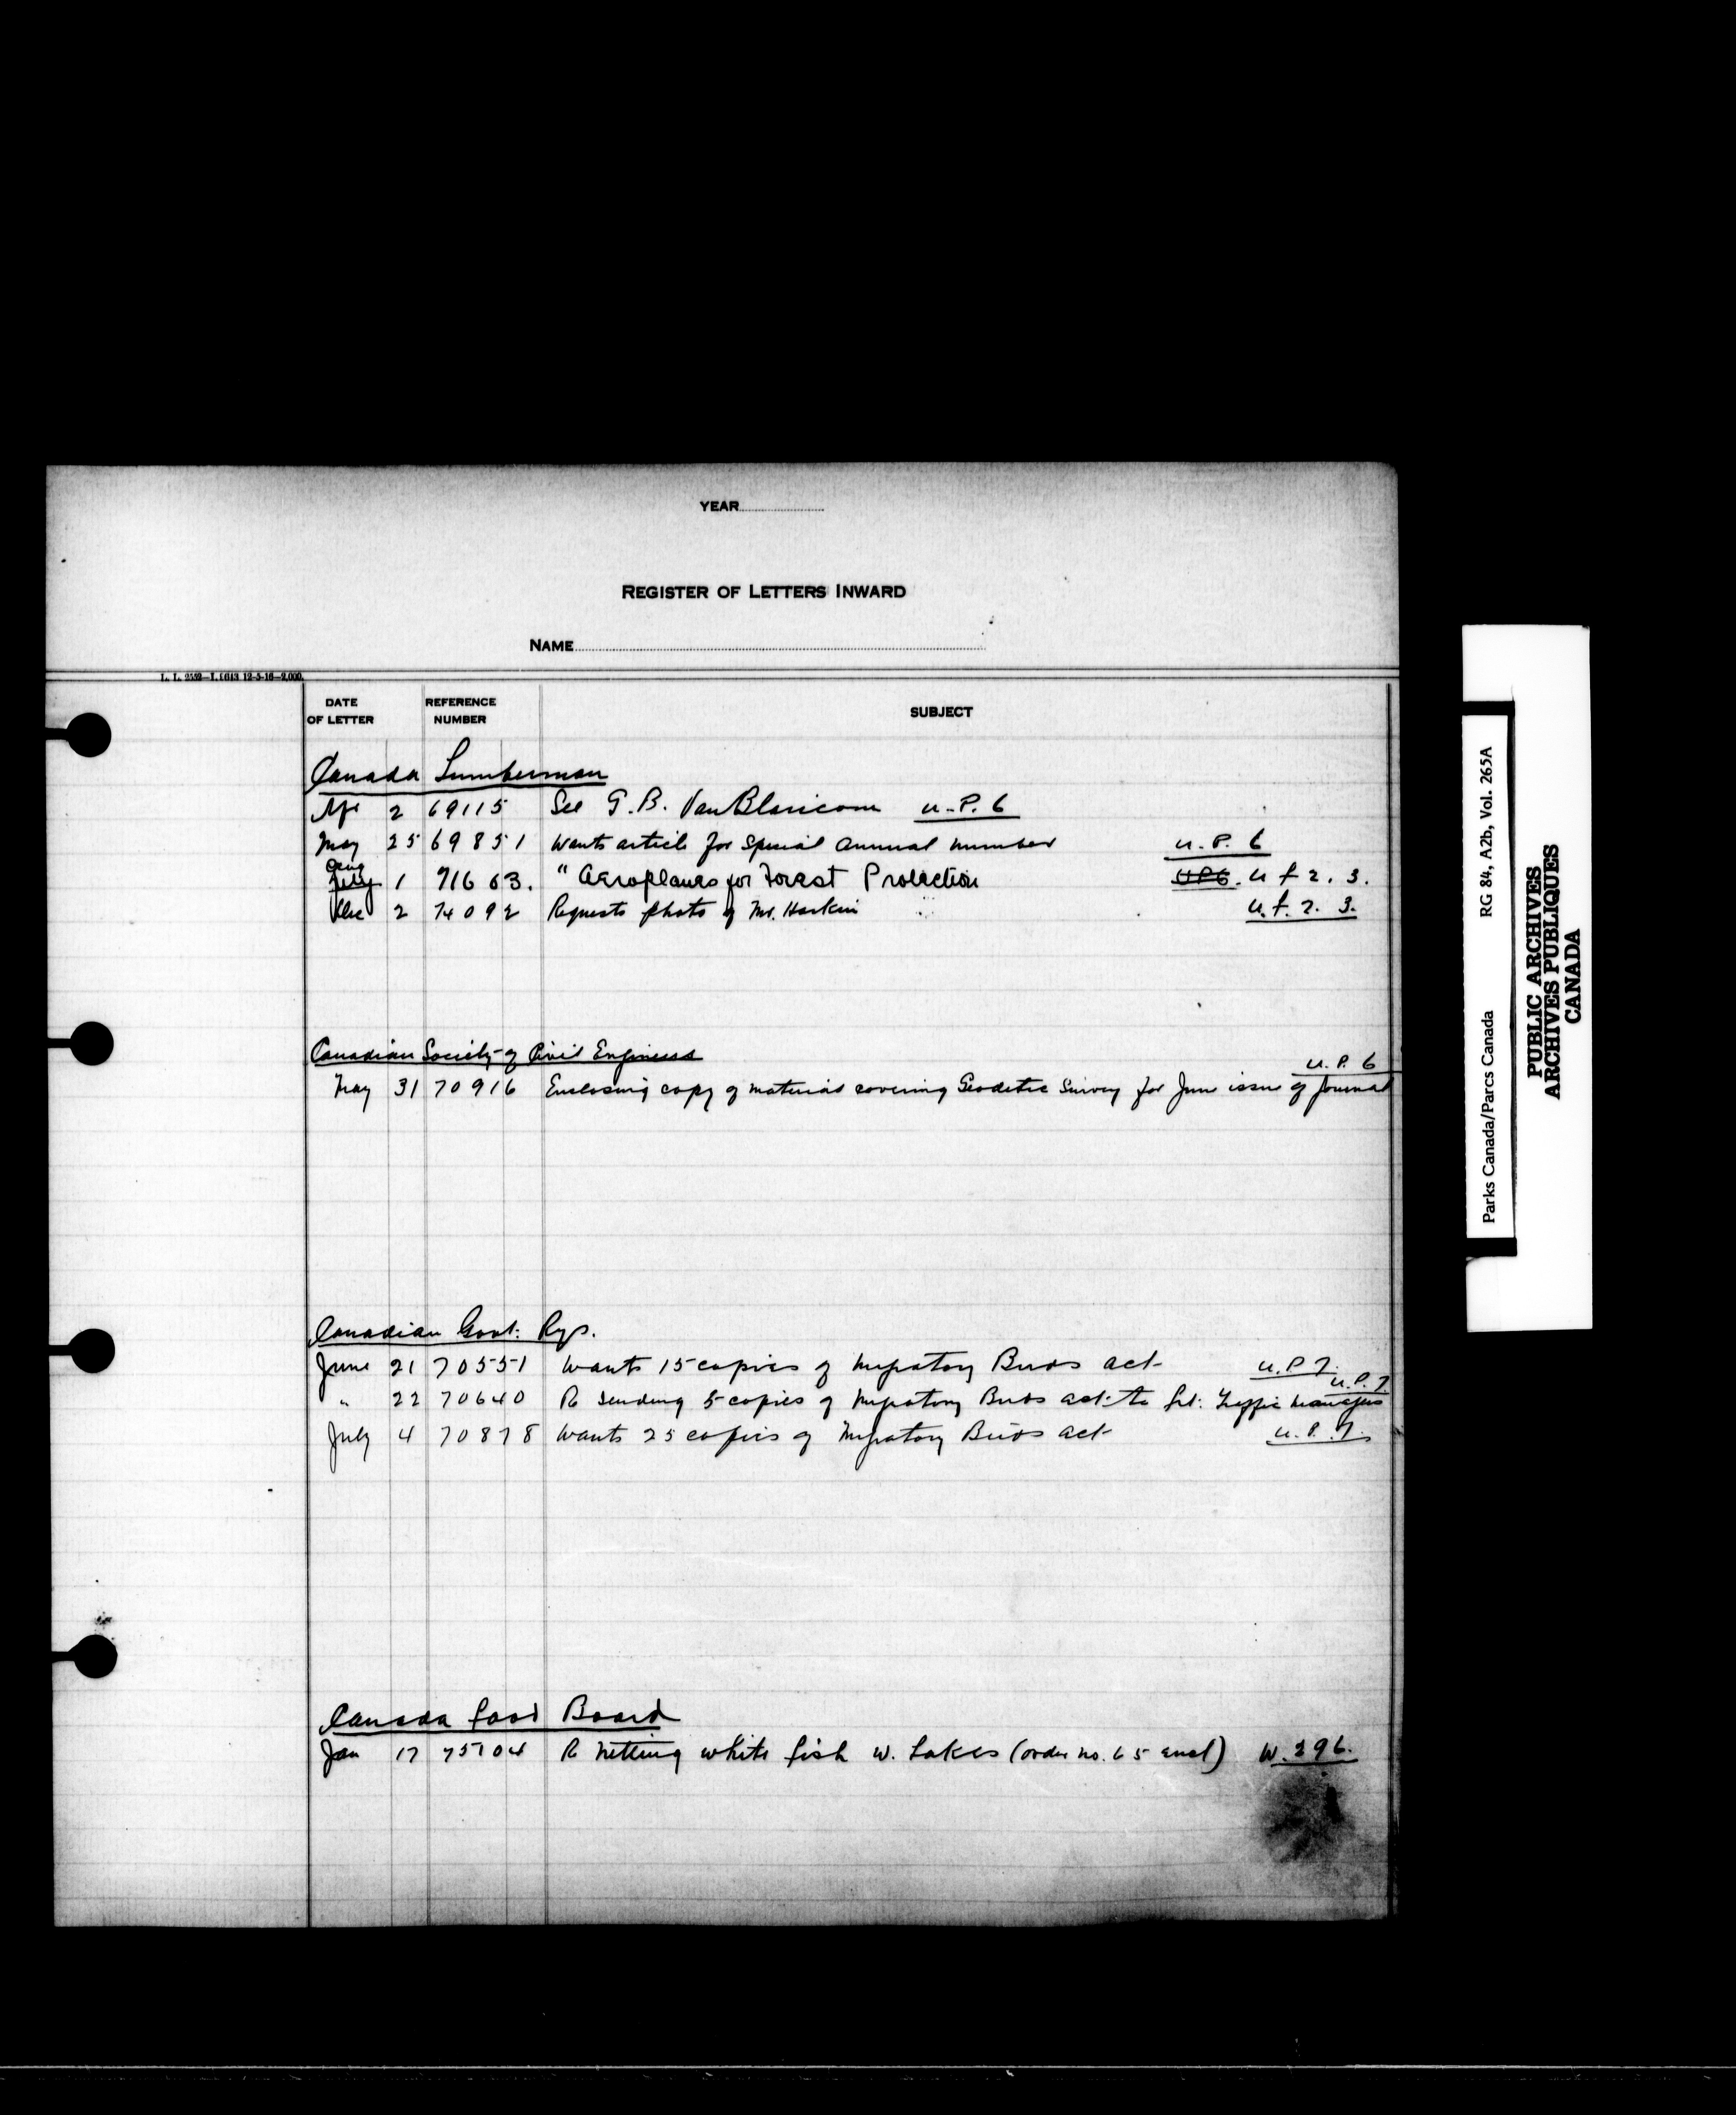 YEAR
REGISTER OF LETTERS INWARD
NAME
L. L. 2552—I. 12-5-16—2,000.
DATE OF LETTER REFERENCE NUMBER SUBJECT
Canada Lumberman
Apr 2 69115 See G. B. VanBlaricom U.P. 6
May 25 69851 Wants article for Special Annual Number U.P. 6
Aug
July 1 71663. " Aeroplanes for Forest Protection UP6. U f 2. 3.
Dec 2 74092 Requests photo of Mr. Harkin U. f. 2. 3.
Canadian Society of Civil Engineers
U.P. 6
May 31 70916 Enclosing copy of material covering Geodetic Survey for June issue of Journal
Canadian Govt: Rys.
June 21 70551 Wants 15 copies of Migratory Birds act U.P. 7.
U.P. 7
" 22 70640 R sending 5 copies of Migratory Birds act to Traffic Manager
July 4 70878 Wants 25 copies of Migratory Birds act U.P. 7.
Canada Food Board
Jan 17 75704 R Netting white fish W. Lakes (order no. 65 encl) W. 296.
Parks Canada/Parcs Canada RG 84, A2b, Vol. 265A
PUBLIC ARCHIVES
ARCHIVES PUBLIQUES
CANADA